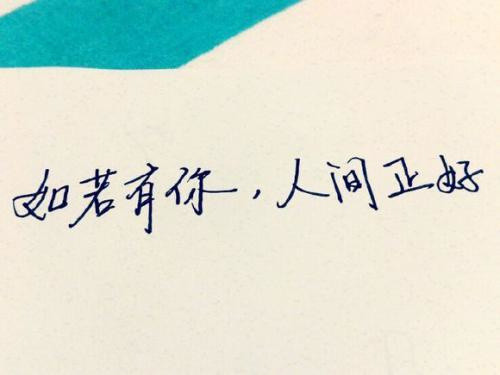 如若有你，人间正好